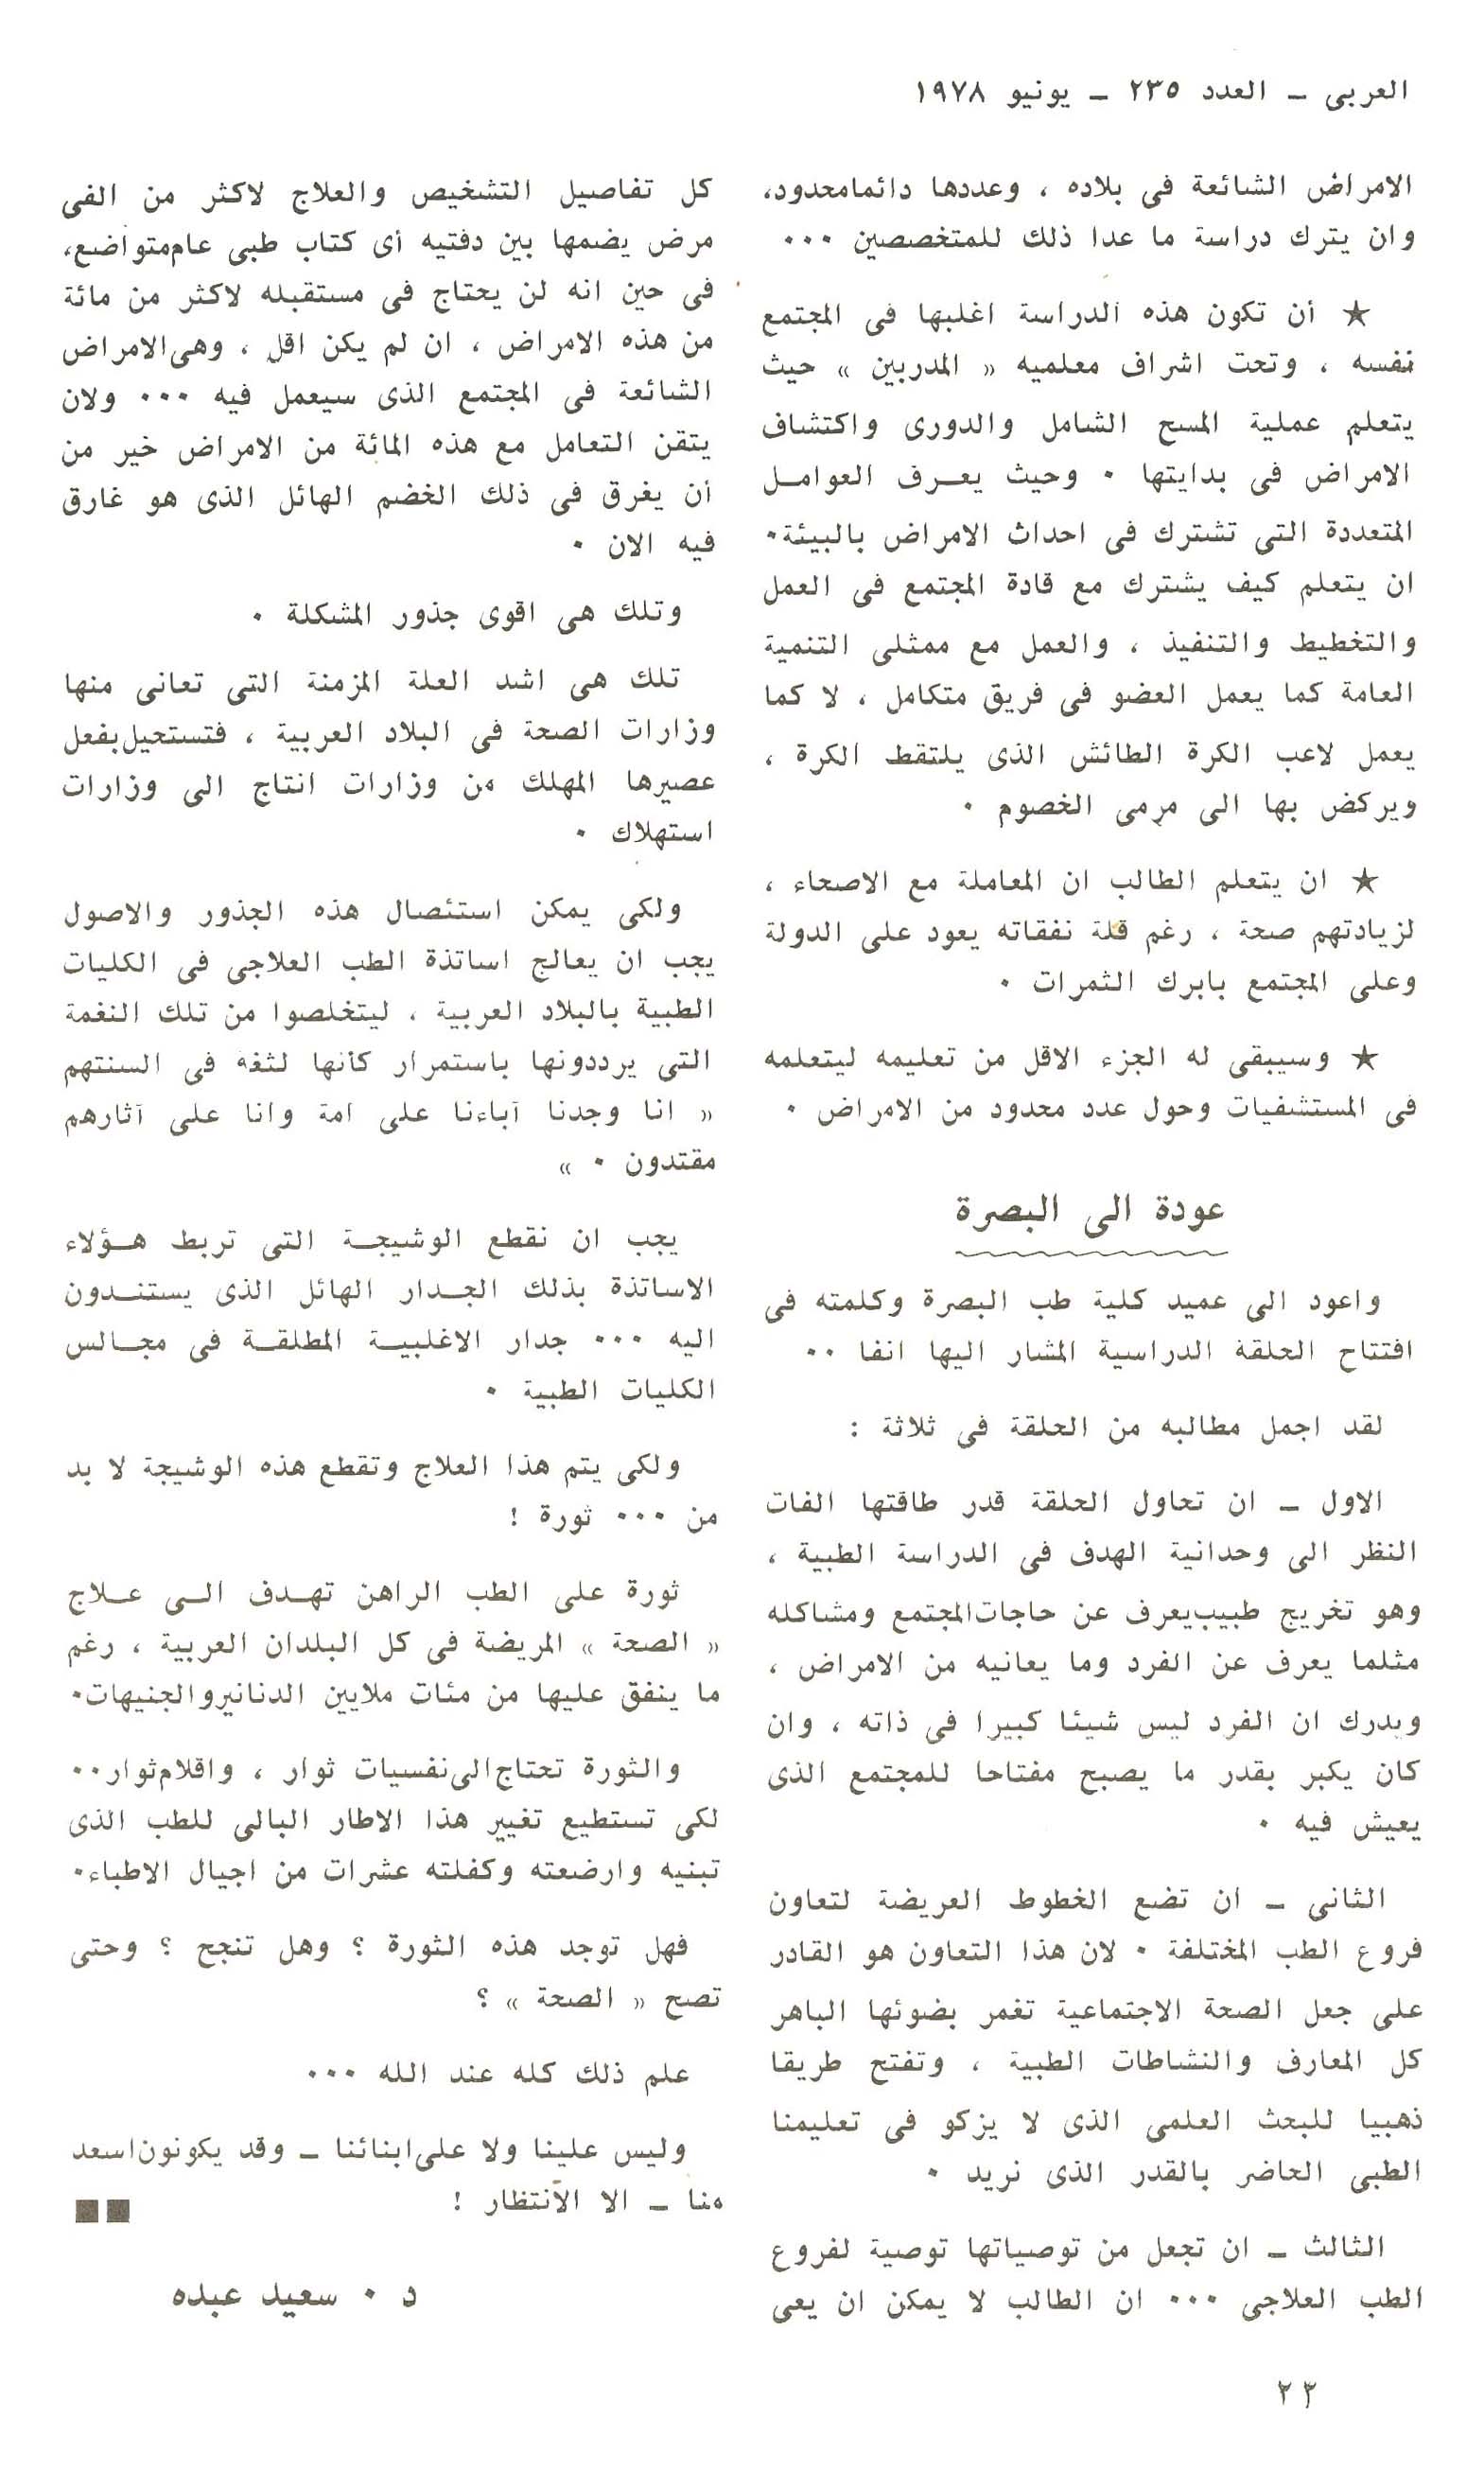 العربى – العدد ٢٣٥ – يونيو ١٩٧٨
الامراض الشائعة فى بلاده ، وعددها دائما محدود،
وان يترك دراسة ما عدا ذلك للمتخصصين ٠٠٠
★ أن تكون هذه الدراسة اغلبها فى المجتمع
نفسه ، وتحت اشراف معلميه « المدربين » حيث
يتعلم عملية المسح الشامل والدورى واكتشاف
الامراض فى بدايتها ٠ وحيث يعـرف العوامـل
المتعددة التى تشترك فى احداث الامراض بالبيئة٠
ان يتعلم كيف يشترك مع قادة المجتمع فى العمل
والتخطيط والتنفيذ ، والعمل مع ممثلى التنمية
العامة كما يعمل العضو فى فريق متكامل ، لا كما
يعمل لاعب الكرة الطائش الذى يلتقط الكرة ،
ويركض بها الى مرمى الخصوم ٠
★ ان يتعلم الطالب ان المعاملة مع الاصحاء ،
لزيادتهم صحة ، رغم قلة نفقاته يعود على الدولة
وعلى المجتمع بابرك الثمرات ٠
★ وسيبقى له الجزء الاقل من تعليمه ليتعلمه
فى المستشفيات وحول عدد محدود من الامراض ٠
عودة الى البصرة
واعود الى عميد كلية طب البصرة وكلمته فى
افتتاح الحلقة الدراسية المشار اليها انفا ٠٠
لقد اجمل مطالبه من الحلقة فى ثلاثة :
الاول – ان تحاول الحلقة قدر طاقتها الفات
النظر الى وحدانية الهدف فى الدراسة الطبية ،
وهو تخريج طبيب يعرف عن حاجات المجتمع ومشاكله
مثلما يعرف عن الفرد وما يعانيه من الامراض ،
ويدرك ان الفرد ليس شيئا كبيرا فى ذاته ، وان
كان يكبر بقدر ما يصبح مفتاحا للمجتمع الذى
يعيش فيه ٠
الثانى – ان تضع الخطوط العريضة لتعاون
فروع الطب المختلفة ٠ لان هذا التعاون هو القادر
على جعل الصحة الاجتماعية تغمر بضوئها الباهر
كل المعارف والنشاطات الطبية ، وتفتح طريقا
ذهبيا للبحث العلمى الذى لا يزكو فى تعليمنا
الطبى الحاضر بالقدر الذى نريد ٠
الثالث – ان تجعل من توصياتها توصية لفروع
الطب العلاجى ٠٠٠ ان الطالب لا يمكن ان يعى
كل تفاصيل التشخيص والعلاج لاكثر من الفى
مرض يضمها بين دفتيه أى كتاب طبى عام متواضع،
فى حين انه لن يحتاج فى مستقبله لاكثر من مائة
من هذه الامراض ، ان لم يكن اقل ، وهى الامراض
الشائعة فى المجتمع الذى سيعمل فيه ٠٠٠ ولان
يتقن التعامل مع هذه المائة من الامراض خير من
أن يغرق فى ذلك الخضم الهائل الذى هو غارق
فيه الان ٠
وتلك هى اقوى جذور المشكلة ٠
تلك هى اشد العلة المزمنة التى تعانى منها
وزارات الصحة فى البلاد العربية ، فتستحيل بفعل
عصيرها المهلك من وزارات انتاج الى وزارات
استهلاك ٠
ولكى يمكن استئصال هذه الجذور والاصول
يجب ان يعالج اساتذة الطب العلاجى فى الكليات
الطبية بالبلاد العربية ، ليتخلصوا من تلك النغمة
التى يرددونها باستمرار كأنها لثغة فى السنتهم
« انا وجدنا آباءنا على امة وانا على آثارهم
مقتدون ٠ »
يجب ان نقطع الوشيجـة التى تربط هـؤلاء
الاساتذة بذلك الجـدار الهائل الذى يستنـدون
اليه ٠٠٠ جدار الاغلبيـة المطلقـة فى مجـالس
الكليات الطبية ٠
ولكى يتم هذا العلاج وتقطع هذه الوشيجة لا بد
من ٠٠٠ ثورة !
ثورة على الطب الراهن تهـدف الـى عـلاج
« الصحة » المريضة فى كل البلدان العربية ، رغم
ما ينفق عليها من مئات ملايين الدنانير والجنيهات٠
والثورة تحتاج الى نفسيات ثوار ، واقلام ثوار٠٠
لكى تستطيع تغيير هذا الاطار البالى للطب الذى
تبنيه وارضعته وكفلته عشرات من اجيال الاطباء٠
فهل توجد هذه الثورة ؟ وهل تنجح ؟ وحتى
تصح « الصحة » ؟
علم ذلك كله عند الله ٠٠٠
وليس علينا ولا على ابنائنا – وقد يكونون اسعد
منا – الا الانتظار !
د ٠ سعيد عبده
٢٢